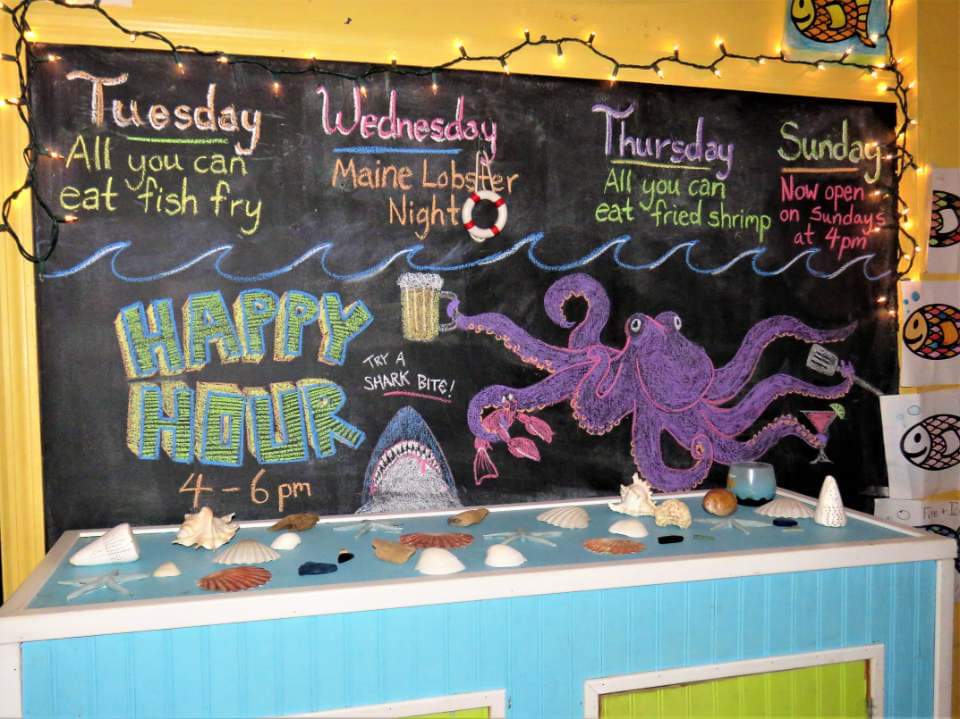 Tuesday
All you can
eat fish fry
Wednesday
Maine Lobster
Night
Thursday
All you can
eat fried shrimp
Sunday
Now open
on Sundays
at 4pm
HAPPY
HOUR
4 - 6 pm
TRY A
SHARK BITE!